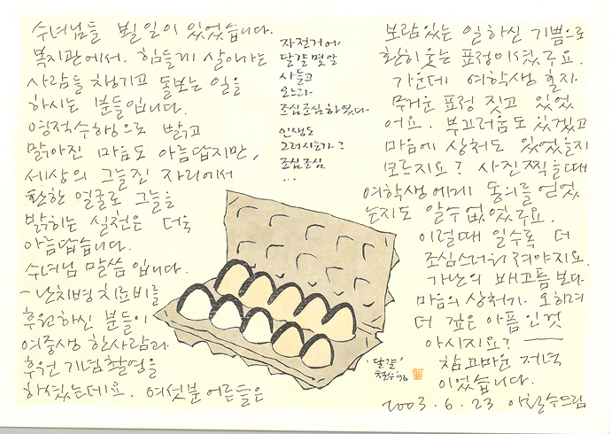 수녀님들 뵐 일이 있었습니다.
복지관에서. 힘들게 살아가는
사람들 챙기고 돌보는 일을
하시는 분들입니다.
영적수행으로 밝고
맑아진 마음도 아름답지만,
세상의 그늘진 자리에서
환한 얼굴로 그늘을
밝히는 실천은 더욱
아름답습니다.
수녀님 말씀입니다.
- 난치병 치료비를
후원하신 분들이
여중생 한 사람과
후원 기념촬영을
하셨는데요. 여섯분 어른들은
자전거에
달걀 몇 알
사들고
오느라
조심조심하였다
인생도
그러시는가?
조심조심
...
달걀
철수 96
보람있는 일 하신 기쁨으로
환히 웃는 표정이셨구요.
가운데 여학생 혼자
무거운 표정 짓고 있었
어요. 부끄러움도 있겠고
마음에 상처도 있었을지
모르지요? 사진 찍을 때
여학생에게 동의를 얻었
는지도 알 수 없었구요.
이럴때 일수록 더
조심스러워져야지요.
가난의 배고픔보다
마음의 상처가 오히려
더 깊은 아픔인 것
아시지요? —
참 고마운 저녁
이었습니다.
2003. 6. 23 이철수 드림